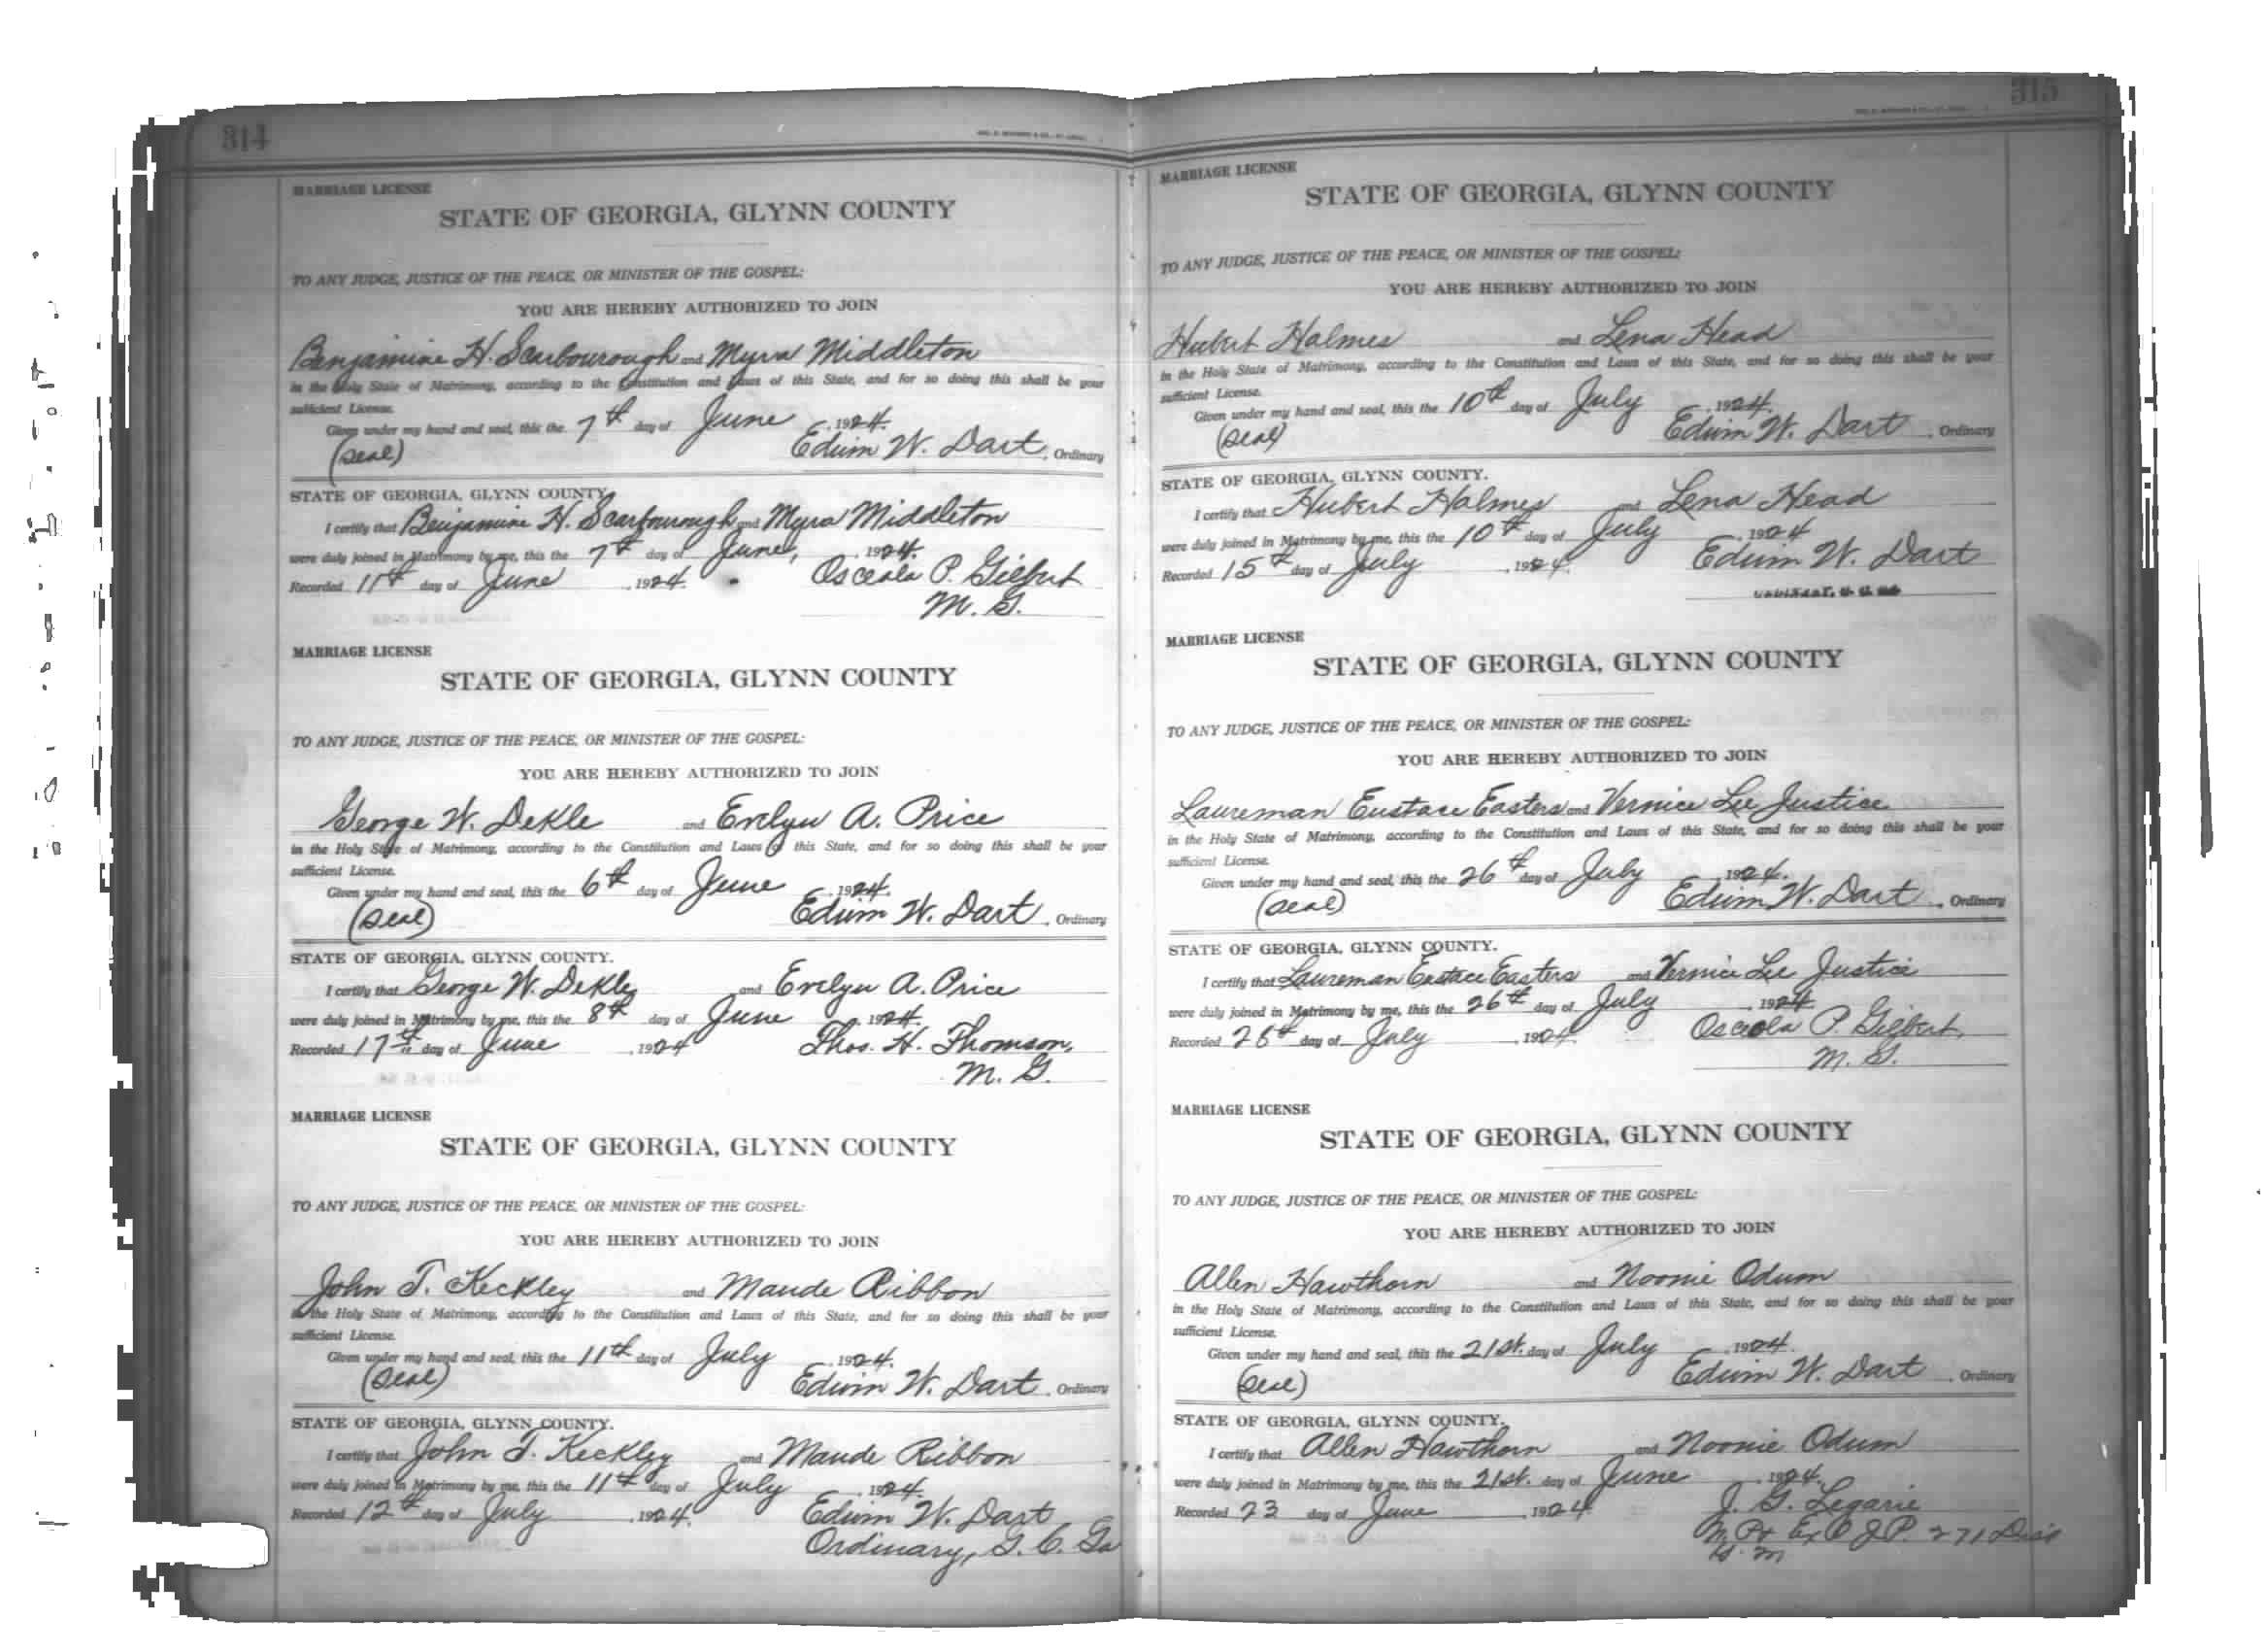 314
MARRIAGE LICENSE
STATE OF GEORGIA, GLYNN COUNTY
TO ANY JUDGE, JUSTICE OF THE PEACE, OR MINISTER OF THE GOSPEL:
YOU ARE HEREBY AUTHORIZED TO JOIN
Benjamine H. Scarbourough and Myra Middleton
in the Holy State of Matrimony, according to the Constitution and Laws of this State, and for so doing this shall be your
sufficient License.
Given under my hand and seal, this the 7th day of June, 1924.
(Seal) Edwin W. Dart, Ordinary
STATE OF GEORGIA, GLYNN COUNTY.
I certify that Benjamine H. Scarbourough and Myra Middleton
were duly joined in Matrimony by me, this the 7th day of June, 1924.
Recorded 11th day of June, 1924. Osceola P. Gilbert
M. G.
MARRIAGE LICENSE
STATE OF GEORGIA, GLYNN COUNTY
TO ANY JUDGE, JUSTICE OF THE PEACE, OR MINISTER OF THE GOSPEL:
YOU ARE HEREBY AUTHORIZED TO JOIN
George W. DeKle and Evelyn A. Price
in the Holy State of Matrimony, according to the Constitution and Laws of this State, and for so doing this shall be your
sufficient License.
Given under my hand and seal, this the 6th day of June, 1924.
(Seal) Edwin W. Dart, Ordinary
STATE OF GEORGIA, GLYNN COUNTY.
I certify that George W. DeKle and Evelyn A. Price
were duly joined in Matrimony by me, this the 8th day of June, 1924.
Recorded 17th day of June, 1924 Thos. H. Thomson,
M. G.
MARRIAGE LICENSE
STATE OF GEORGIA, GLYNN COUNTY
TO ANY JUDGE, JUSTICE OF THE PEACE, OR MINISTER OF THE GOSPEL:
YOU ARE HEREBY AUTHORIZED TO JOIN
John T. Keckley and Maude Ribbon
in the Holy State of Matrimony, according to the Constitution and Laws of this State, and for so doing this shall be your
sufficient License.
Given under my hand and seal, this the 11th day of July, 1924.
(Seal) Edwin W. Dart, Ordinary
STATE OF GEORGIA, GLYNN COUNTY.
I certify that John T. Keckley and Maude Ribbon
were duly joined in Matrimony by me, this the 11th day of July, 1924.
Recorded 12th day of July, 1924. Edwin W. Dart
Ordinary, G. C. Ga
315
MARRIAGE LICENSE
STATE OF GEORGIA, GLYNN COUNTY
TO ANY JUDGE, JUSTICE OF THE PEACE, OR MINISTER OF THE GOSPEL:
YOU ARE HEREBY AUTHORIZED TO JOIN
Hubert Holmes and Lena Head
in the Holy State of Matrimony, according to the Constitution and Laws of this State, and for so doing this shall be your
sufficient License.
Given under my hand and seal, this the 10th day of July, 1924.
(Seal) Edwin W. Dart, Ordinary
STATE OF GEORGIA, GLYNN COUNTY.
I certify that Hubert Holmes and Lena Head
were duly joined in Matrimony by me, this the 10th day of July, 1924
Recorded 15th day of July, 1924. Edwin W. Dart
MARRIAGE LICENSE
STATE OF GEORGIA, GLYNN COUNTY
TO ANY JUDGE, JUSTICE OF THE PEACE, OR MINISTER OF THE GOSPEL:
YOU ARE HEREBY AUTHORIZED TO JOIN
Laureman Eustace Easters and Vernice Lee Justice
in the Holy State of Matrimony, according to the Constitution and Laws of this State, and for so doing this shall be your
sufficient License.
Given under my hand and seal, this the 26th day of July, 1924.
(Seal) Edwin W. Dart, Ordinary
STATE OF GEORGIA, GLYNN COUNTY.
I certify that Laureman Eustace Easters and Vernice Lee Justice
were duly joined in Matrimony by me, this the 26th day of July, 1924
Recorded 28th day of July, 1924. Osceola P. Gilbert,
M. G.
MARRIAGE LICENSE
STATE OF GEORGIA, GLYNN COUNTY
TO ANY JUDGE, JUSTICE OF THE PEACE, OR MINISTER OF THE GOSPEL:
YOU ARE HEREBY AUTHORIZED TO JOIN
Allen Hawthorn and Noonie Odum
in the Holy State of Matrimony, according to the Constitution and Laws of this State, and for so doing this shall be your
sufficient License.
Given under my hand and seal, this the 21st. day of July, 1924.
(Seal) Edwin W. Dart, Ordinary
STATE OF GEORGIA, GLYNN COUNTY.
I certify that Allen Hawthorn and Noonie Odum
were duly joined in Matrimony by me, this the 21st. day of June, 1924.
Recorded 23 day of June, 1924. J. G. Legarie
Ex O J P. 271 Dis
G. M